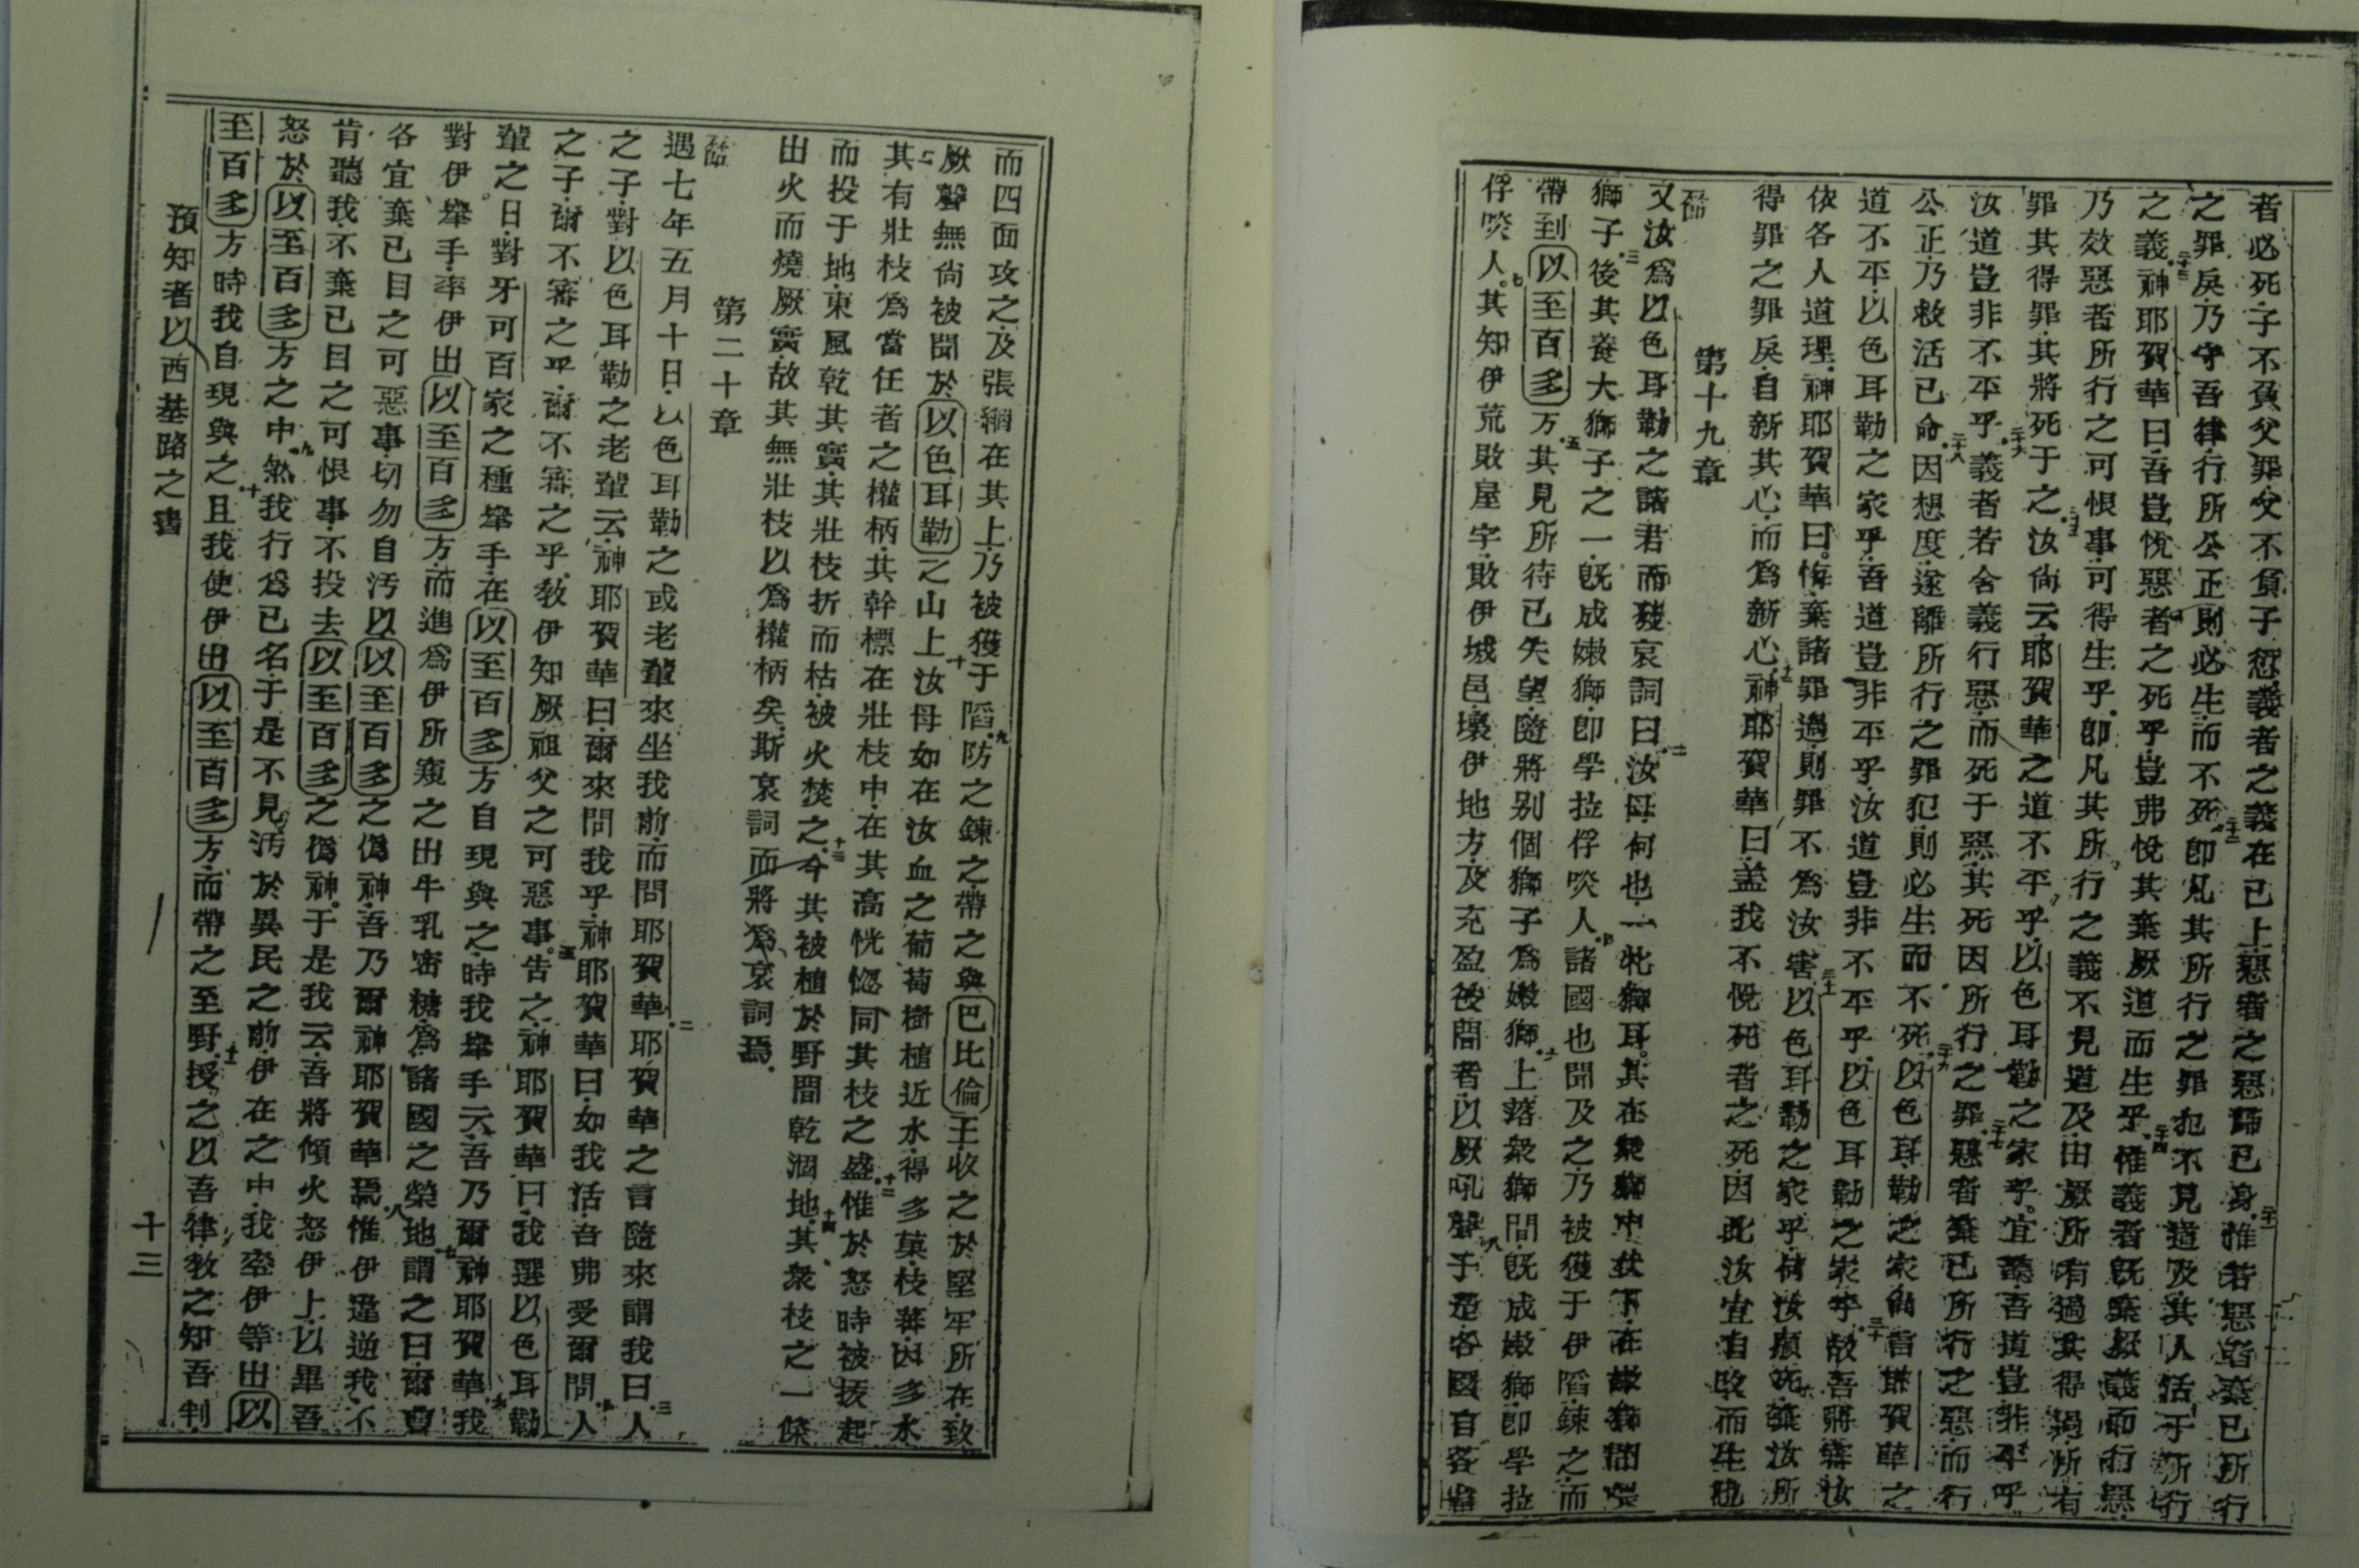 者必死子不負父罪父不負子愆義者之義在己上惡者之惡歸己身惟若惡者棄己所行
之罪戾乃守吾律行所公正則必生而不死卽凡其所行之罪犯不見道及其人活于所行
之義神耶賀華曰吾豈悅惡者之死乎豈弗悅其棄厥道而生乎惟義者旣棄厥義而行惡
乃效惡者所行之可恨事可得生乎卽凡其所行之義不見道及由厥所有過其得過所有
罪其得罪其將死于之汝尙云耶賀華之道不平乎以色耳勒之家乎宜聽吾道豈非平乎
汝道豈非不平乎義者若舍義行惡而死于惡其死因所行之罪惡者棄已所行之惡而行
公正乃救活已命因想度遂離所行之罪犯則必生而不死以色耳勒之家尙言耶賀華之
道不平以色耳勒之家乎吾道豈非平乎汝道豈非不平乎以色耳勒之家乎故吾將審汝
依各人道理神耶賀華曰悔棄諸罪過則罪不爲汝害以色耳勒之家乎何汝願死棄汝所
得罪之罪戾自新其心而爲新心神耶賀華曰蓋我不悅死者之死因此汝宜自改而生也
第十九章
又汝爲以色耳勒之諸君而發哀詞曰汝母何也一牝獅耳其在衆獅中伏下在嫩獅間養
獅子後其養大獅子之一旣成嫩獅卽學拉俘啖人諸國也聞及之乃被獲于伊䧟鍊之而
帶到以至百多方其見所待已失望隨將别個獅子爲嫩獅上落衆獅間旣成嫩獅卽學拉
俘啖人其知伊荒敗屋宇敗伊城邑壞伊地方及充盈後間者以厥吼聲于是各國自各省
而四面攻之及張網在其上乃被獲于䧟防之鍊之帶之與巴比倫王收之於堅牢所在致
厥聲無尙被聞於以色耳勒之山上汝母如在汝血之葡萄樹植近水得多菓枝葬因多水
其有壯枝爲當任者之權柄其幹標在壯枝中在其高恍惚同其枝之盛惟於怒時被拔起
而投于地東風乾其實其壯枝折而枯被火焚之今其被植於野間乾涸地其衆枝之一條
出火而燒厥實故其無壯枝以爲權柄矣斯哀詞而將爲哀詞焉
第二十章
遇七年五月十日以色耳勒之或老輩來坐我前而問耶賀華耶賀華之言隨來謂我曰人
之子對以色耳勒之老輩云神耶賀華曰爾來問我乎神耶賀華曰如我活吾弗受爾問人
之子爾不審之乎爾不審之乎敎伊知厥祖父之可惡事告之神耶賀華曰我選以色耳勒
輩之日對牙可百家之種擧手在以至百多方自現與之時我擧手云吾乃爾神耶賀華我
對伊擧手率伊出以至百多方而進爲伊所窺之出牛乳密糖爲諸國之榮地謂之曰爾曹
各宜棄已目之可惡事切勿自汚以以至百多之僞神吾乃爾神耶賀華焉惟伊違逆我不
肯聽我不棄已目之可恨事不投去以至百多之僞神于是我云吾將傾火怒伊上以畢吾
怒於以至百多方之中然我行爲已名于是不見汚於異民之前伊在之中我率伊等出以
至百多方時我自現與之且我使伊出以至百多方而帶之至野授之以吾律敎之知吾判
預知者以西基路之書
十三